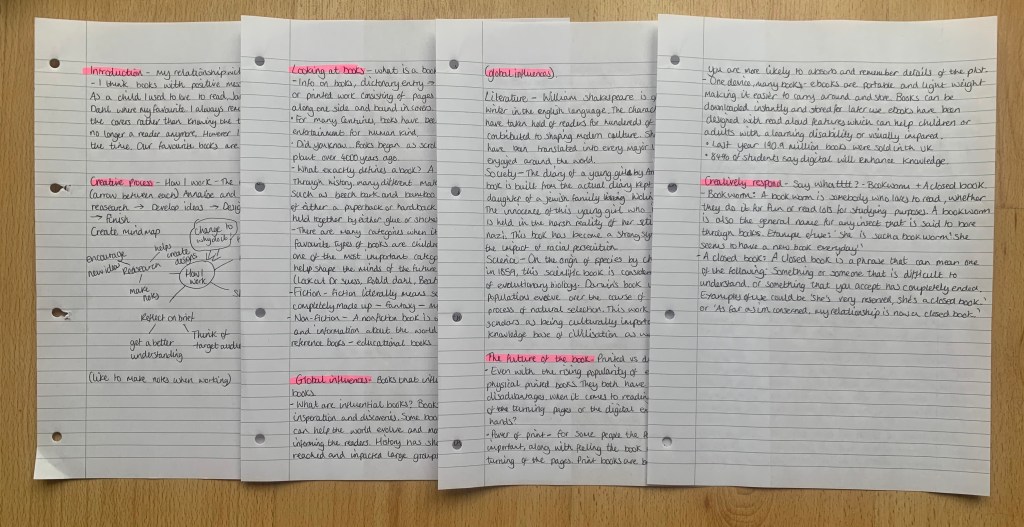 Introduction - My relationship wi
- I think books with positive mes
As a child I used to love to read, Ja
Dahl, where my favourite. I always rem
the covers rather than knowing the t
no longer a reader anymore. However I
the time. Our favourite books are
Creative Process - How I work - The
(arrow between each) Analise and
research → Develop ideas → Desig
→ Finish
Create mind map
Change to
why do it
helps
create
designs
encourage
new ideas
Reasearch
make
notes
How I
work
Reflect on brief
get a better
understanding
Think of
target audie
(like to make notes when working)
Looking at books - what is a boo
- Info on books, dictionary entry →
or printed work consisting of pages
along one side and bound in covers
• For many Centuries, books have be
entertainment for human kind.
- Did you know - Books began as scro
plant over 4000 years ago.
- What exactly defines a book? A
Through history, many different mate
Such as beech bark and bamboo
of either a paperback or hardback
held together by either glue or stiche
- There are many categories when it
favourite types of books are childre
one of the most important categ
help shape the minds of the future
(Look at Dr suess, Roald dahl, Bea
- Fiction - Fiction literally means s
completely made up - Fantasy - m
- Non-Fiction - A nonfictive book is
and information about the world
reference books - educational books
Global influences - Books that infl
books
- What are influential books? Book
inspiration and discoveries. Some boo
can help the world evolve and mo
informing the readers. History has sh
reached and impacted large group
(global influences).
Literature - William shakespeare is
writer in the english language. The charac
have taken hold of readers for hundreds of
contributed to shaping modern culture. Sh
have been translated into every major
enjoyed around the world.
Society - The diary of a young girl by An
book is built from the actual diary kept
daughter of a jewish family living, hidin
The innocence of this young girl who
is held in the harsh reality of her
nazi. This book has become a strong sy
the impact of racial persecution.
Science - On the origin of species by ch
in 1859, this scientific book is conside
of evolutionary biology. Darwin's book
populations evolve over the cause of
process of natural selection. This work
scholars as being culturally importa
knowledge base of civilisation as w
The future of the book - Printed vs d
- Even with the rising popularity of e
physical printed books. They both have
disadvantages, when it comes to readin
of the turning pages or the digital e
hands?
- Power of print - For some people the
important, along with feeling the book
turning of the pages. Print books are b
you are more likely to absorb and remember details of the plot.
- One device, many books - ebooks are portable and light weight
making it easier to carry around and store. Books can be
downloaded instantly and stored for later use. ebooks have been
designed with read aloud features which can help children or
adults with a learning disability or visually impared.
• Last year 190.9 million books were sold in the UK
• 84% of students say digital will enhance knowledge.
Creatively respond - Say Whatttt? - Bookworm + A closed book
- Bookworm: A book worm is somebody who loves to read, whether
they do it for fun or read lots for studying purposes. A bookworm
is also the general name for any insect that is said to bore
through books. Example of use: 'She is such a bookworm! She
seems to have a new book everyday'!
- A closed book: A closed book is a phrase that can mean one
of the following: Something or someone that is difficult to
understand or something that you accept has completely ended.
Examples of use could be 'She's very reserved, she's a closed book.'
or 'As far as im conserned, my relationship is now a closed book.'